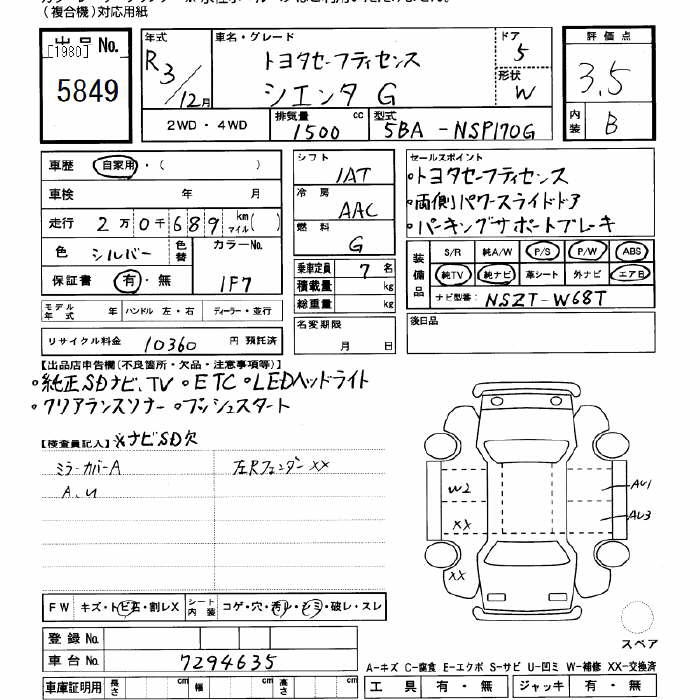 (複合機)対応用紙
出品 No.
[1980]
5849
年式
R3/12月
車名・グレード
トヨタセーフティセンス
シエンタ G
ドア
5
形状
W
2WD・4WD
排気量
1500 cc
型式
5BA - NSP170G
評価点
3.5
内装
B
車歴 自家用・( )
車検 年 月
走行 2万0千689 km マイル( )
色 シルバー 色替 カラーNo.
1F7
保証書 有・無
モデル年式 年 ハンドル 左・右 ディーラー・並行
リサイクル料金 10360 円 預託済
シフト
IAT
冷房
AAC
燃料
G
乗車定員 7 名
積載量 kg
総重量 kg
名変期限
月 日
セールスポイント
・トヨタセーフティセンス
・両側パワースライドドア
・パーキングサポートブレーキ
装備品
S/R 純A/W P/S P/W ABS
純TV 純ナビ 革シート 外ナビ エアB
ナビ型番: NSZT-W68T
後日品
【出品店申告欄(不良箇所・欠品・注意事項等)】
・純正SDナビ、TV ・ETC ・LEDヘッドライト
・クリアランスソナー ・プッシュスタート
【検査員記入】※ナビSD欠
ミラーカバーA 左Rフェンダー XX
A、U
W2
XX
XX
AU1
AU3
スペア
FW キズ・トビ石・割レX シート内装 コゲ・穴・汚レ・シミ・破レ・スレ
登録 No.
車台 No. 7294635
車庫証明用 長さ cm 幅 cm 高さ cm
A-キズ C-腐食 E-エクボ S-サビ U-凹ミ W-補修 XX-交換済
工具 有・無 ジャッキ 有・無